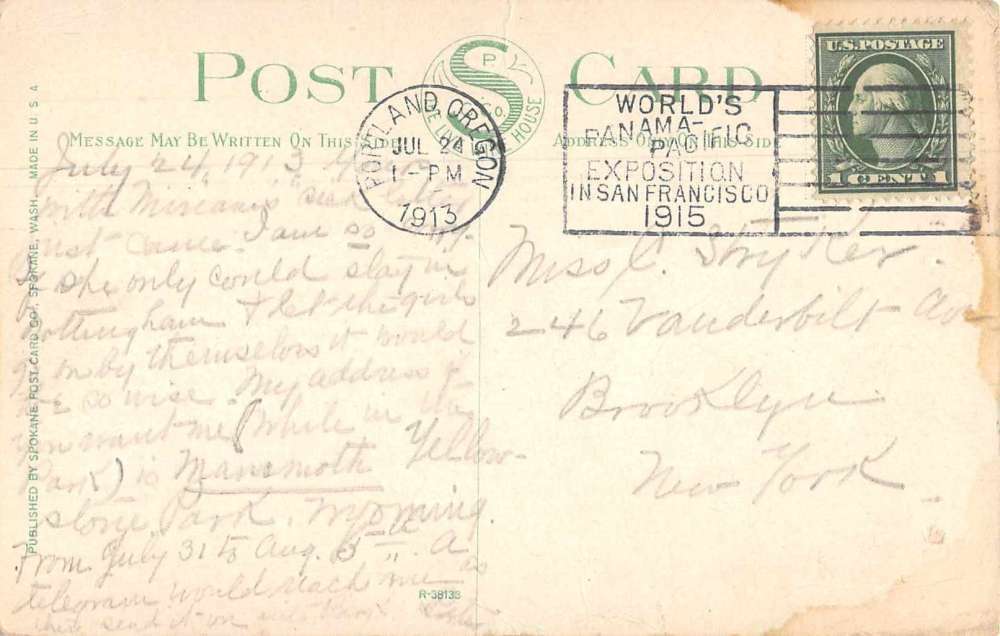 POST CARD
S
P.
Co.
HOUSE
U.S. POSTAGE
1 CENT 1
PORTLAND, OREGON
JUL 24
1-PM
1913
WORLD'S
PANAMA-PACIFIC
EXPOSITION
IN SAN FRANCISCO
1915
MESSAGE MAY BE WRITTEN ON THIS SIDE
ADDRESS ONLY THIS SIDE
July 24, 1913
with
just came I am so
she only could stay in
Nottingham & let the girls
go on by themselves it would
be so wise. My address if
you want me (while in the
Park) is Mammoth Yellow-
stone Park, Wyoming
From July 31 to Aug. 5th. A
telegram would reach me as
they send it on
Miss C. Stryker.
246 Vanderbilt Av
Brooklyn
New York
PUBLISHED BY SPOKANE POST CARD CO., SPOKANE, WASH. MADE IN U S A
R-38133